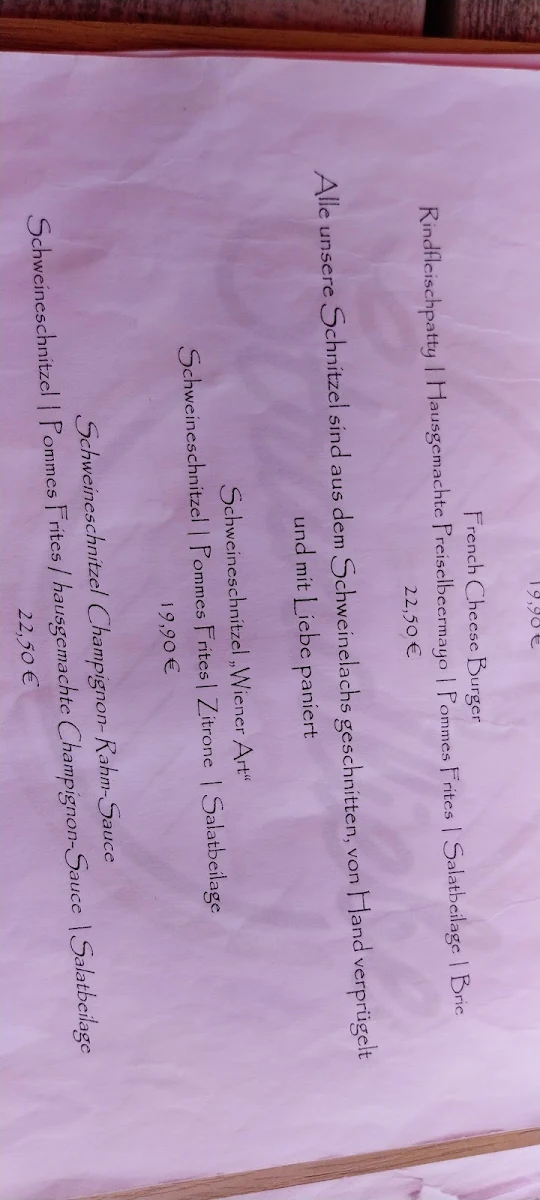 19,90 €
French Cheese Burger
Rindfleischpatty | Hausgemachte Preiselbeermayo | Pommes Frites | Salatbeilage | Brie
22,50 €
Alle unsere Schnitzel sind aus dem Schweinelachs geschnitten, von Hand verprügelt
und mit Liebe paniert
Schweineschnitzel „Wiener Art“
Schweineschnitzel | Pommes Frites | Zitrone | Salatbeilage
19,90 €
Schweineschnitzel Champignon-Rahm-Sauce
Schweineschnitzel | Pommes Frites / hausgemachte Champignon-Sauce | Salatbeilage
22,50 €